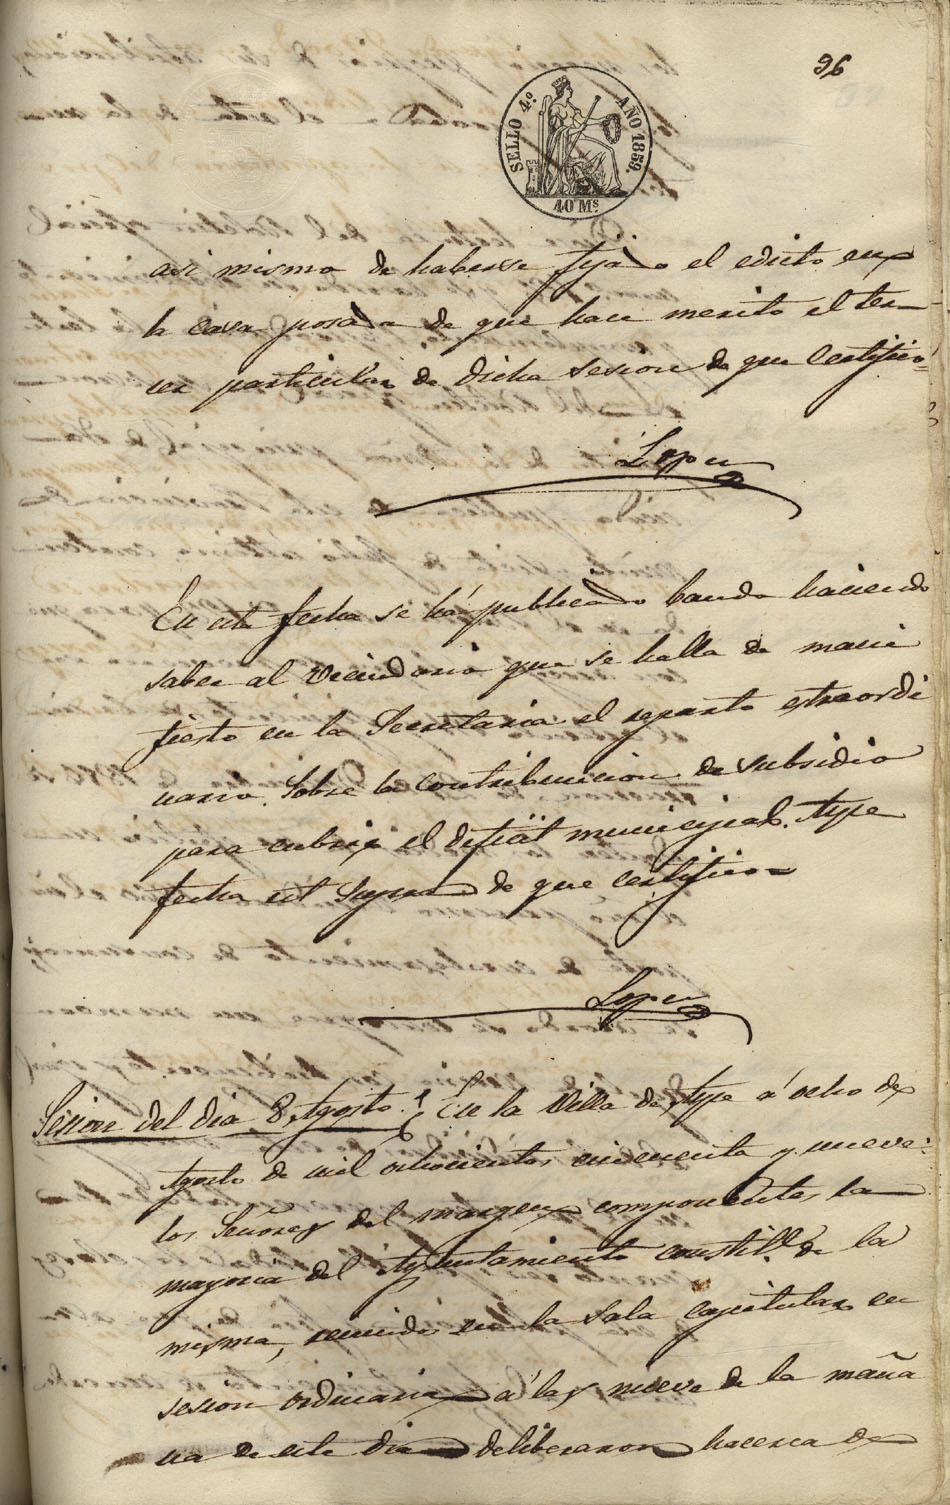 96
SELLO 4.º AÑO 1859.
40 Ms.
asi mismo de haberse fijado el edicto en
la casa posada de que hace merito el ter-
cer particular de dicha sesion de que certifico.
Lopez
En esta fecha se há publicado bando haciendo
saber al vecindario que se halla de mani
fiesto en la Secretaria el reparto estraordi
nario sobre la contribucion de subsidio
para cubrir el deficit municipal. Aspe
fecha ut supra de que certifico
Lopez
Sesion del dia 8 Agosto. En la Villa de Aspe á ocho de
Agosto de mil ochocientos cincuenta y nueve:
los Señores del margen componentes la
mayoria del Ayuntamiento constitl. de la
misma, reunidos en la Sala capitular en
sesion ordinaria á las nueve de la maña
na de este dia deliberaron hacerca de